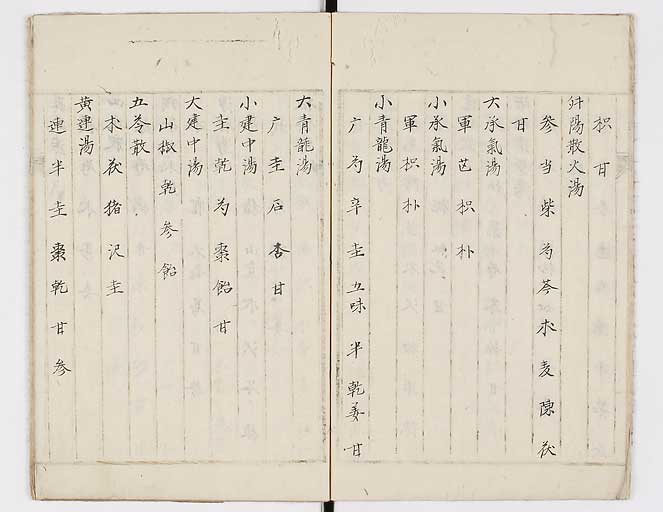 枳 甘
升陽散火湯
参 当 柴 芍 芩 朮 麦 陳 茯
甘
大承氣湯
軍 芒 枳 朴
小承氣湯
軍 枳 朴
小青龍湯
广 芍 辛 圭 五味 半 乾姜 甘
大青龍湯
广 圭 石 杏 甘
小建中湯
圭 乾 芍 棗 飴 甘
大建中湯
山椒 乾 参 飴
五苓散
朮 茯 猪 沢 圭
黄連湯
連 半 圭 棗 乾 甘 参